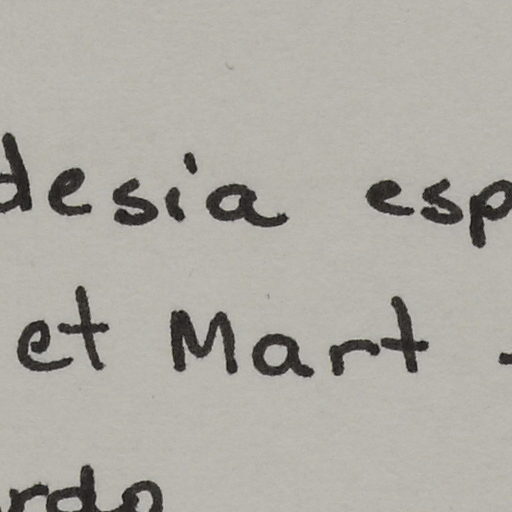 desia esp
et Mart -
rdo